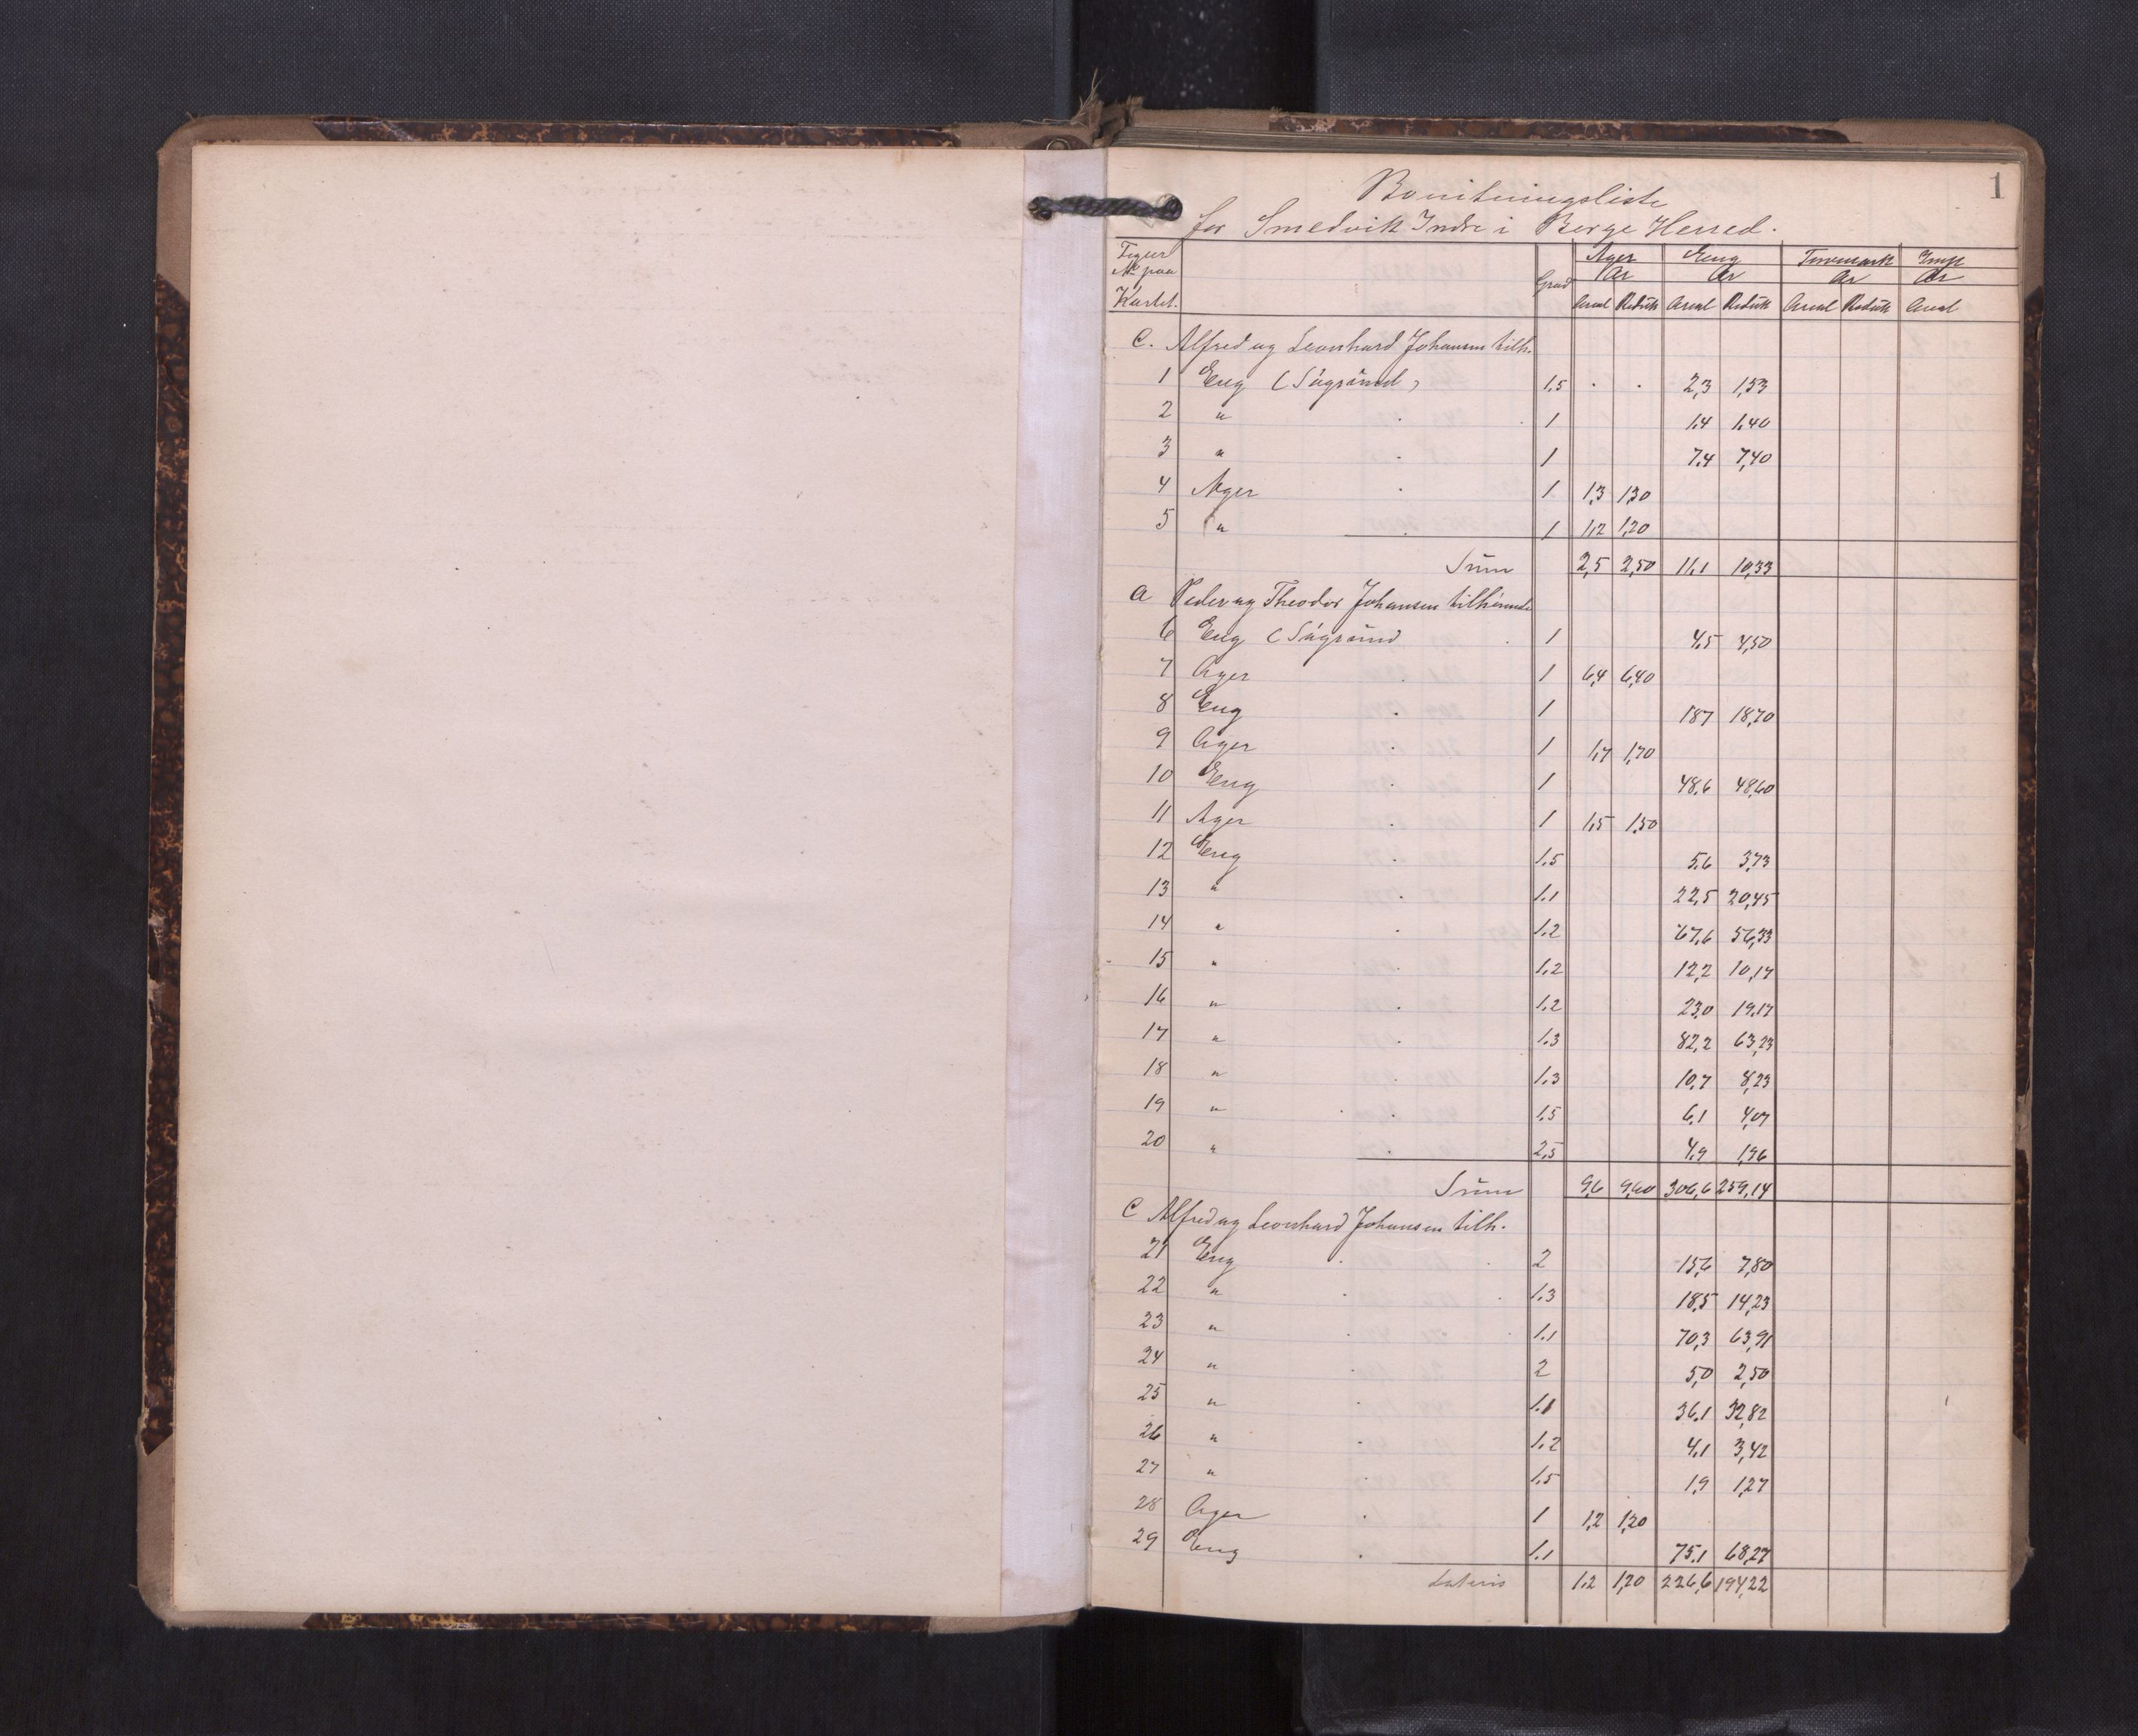 1
Boniteringsliste
for Smedvik Indre i Berge Herred.
Figur Ager Eng Torvmark Imp
No paa Ar Ar Ar Ar
Kartet. Grad Areal Reduk Areal Reduk Areal Reduk Areal
C. Alfred og Leonhard Johansen tilh.
1 Eng ( 1,5 . . 2,3 1,53
2 " . 1 1,4 1,40
3 " . 1 7,4 7,40
4 Ager . 1 1,3 1,30
5 " . 1 1,2 1,20
Sum 2,5 2,50 11,1 10,33
a Peder og Theodor Johansen tilhørende
6 Eng ( 1 4,5 4,50
7 Ager . 1 6,4 6,40
8 Eng . 1 18,7 18,70
9 Ager . 1 1,7 1,70
10 Eng . 1 48,6 48,60
11 Ager . 1 1,5 1,50
12 Eng . 1,5 5,6 3,73
13 " . 1,1 22,5 20,45
14 " . 1,2 67,6 56,33
15 " . 1,2 12,2 10,17
16 " . 1,2 23,0 19,17
17 " . 1,3 82,2 63,23
18 " . 1,3 10,7 8,23
19 " . 1,5 6,1 4,07
20 " . 2,5 4,9 1,96
Sum 9,6 9,60 306,6 259,14
C Alfred og Leonhard Johansen tilh.
21 Eng . 2 15,6 7,80
22 " . 1,3 18,5 14,23
23 " . 1,1 70,3 63,91
24 " . 2 5,0 2,50
25 " . 1,1 36,1 32,82
26 " . 1,2 4,1 3,42
27 " . 1,5 1,9 1,27
28 Ager . 1 1,2 1,20
29 Eng . 1,1 75,1 68,27
Lateris 1,2 1,20 226,6 194,22